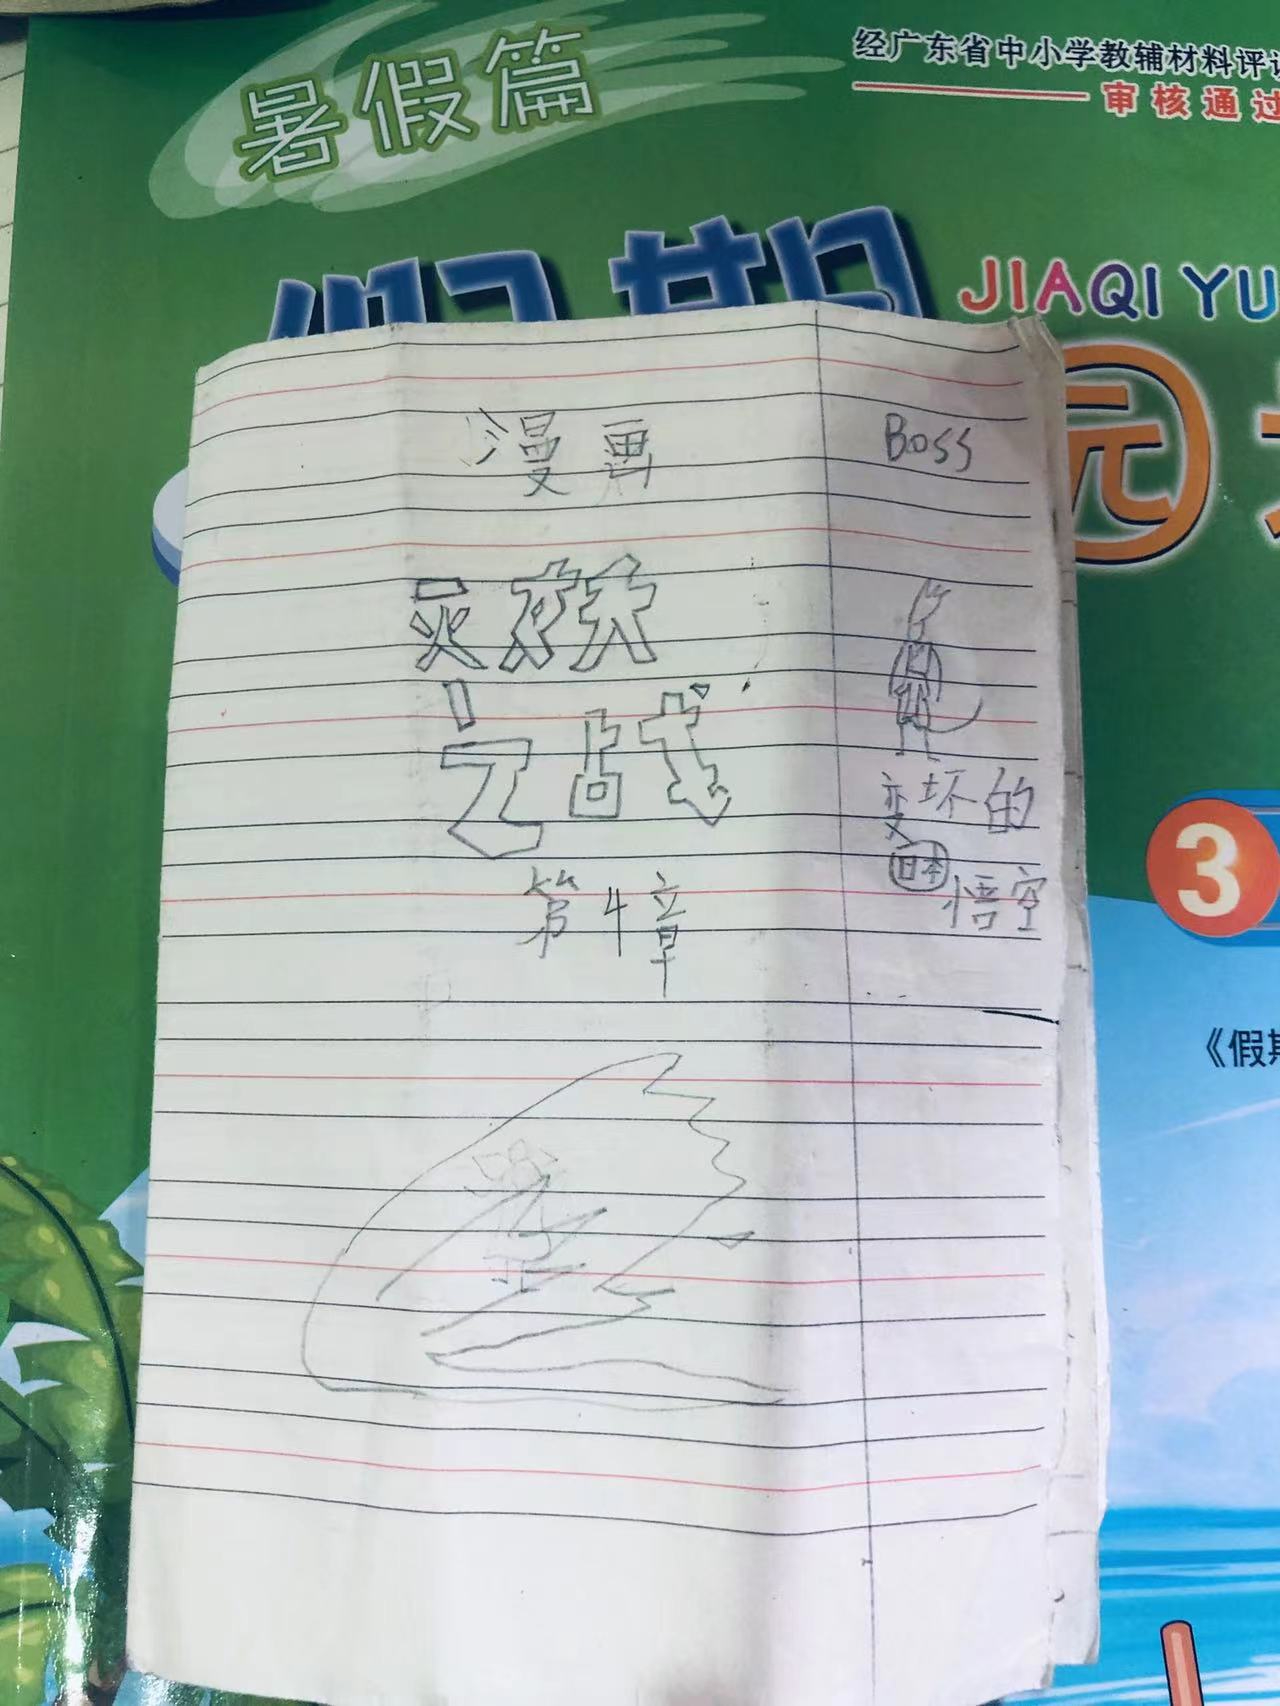 暑假篇
经广东省中小学教辅材料评
审核通过
假期
JIAQI YU
元
漫画
Boss
之战
变坏的
日本
悟空
第4章
3
《假期